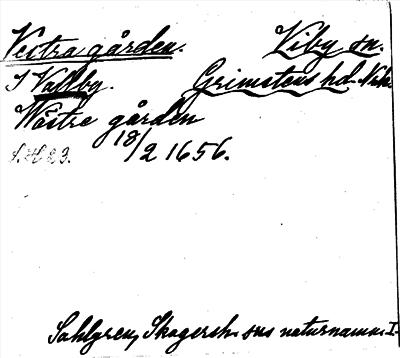 Vestra gården. Viby sn.
I Vallby. Grimstens hd. Nke.
Wästre gården
18/2 1656.
Sahlgren, Skagersh. sns naturnamn I.